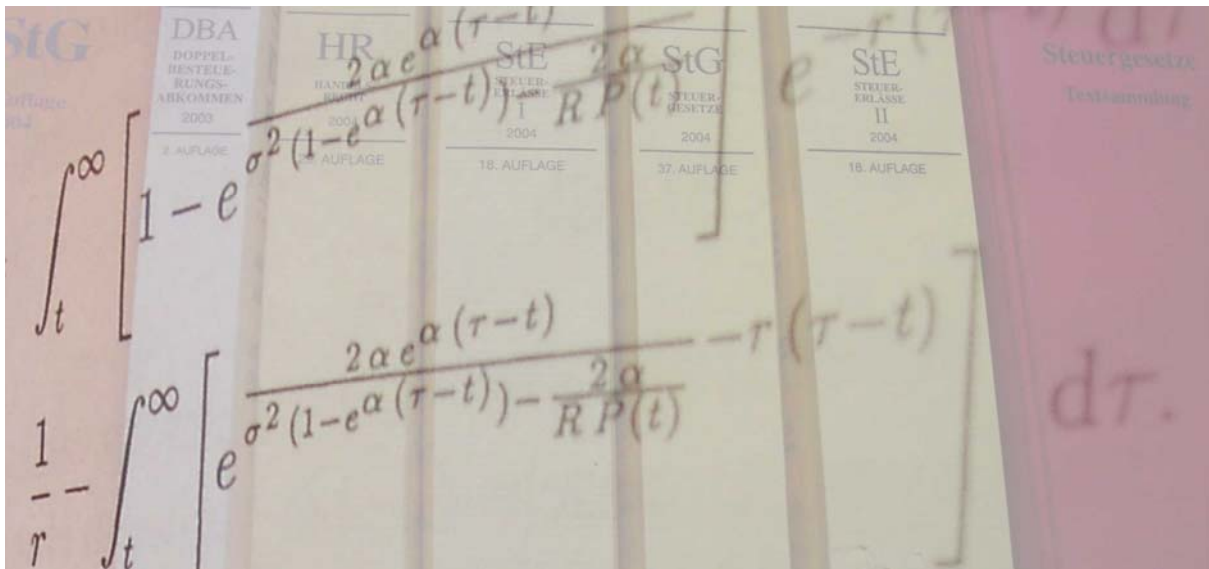 StG
DBA
DOPPEL-
BESTEUE-
RUNGS-
ABKOMMEN
2003
HR
HANDELS-
RECHT
2004
AUFLAGE
StE
STEUER-
ERLASSE
I
2004
18. AUFLAGE
StG
STEUER-
GESETZE
2004
37. AUFLAGE
StE
STEUER-
ERLASSE
II
2004
18. AUFLAGE
Steuergesetze
Textsammlung
∫_t^∞ [1 − e^{\frac{2 α e^{α (τ−t)}}{σ^2 (1−e^{α (τ−t)}) − \frac{2 α}{R P(t)}}}] e^{−r (τ−t)} dτ
\frac{1}{r} − ∫_t^∞ [e^{\frac{2 α e^{α (τ−t)}}{σ^2 (1−e^{α (τ−t)}) − \frac{2 α}{R P(t)}} − r (τ−t)}] dτ.